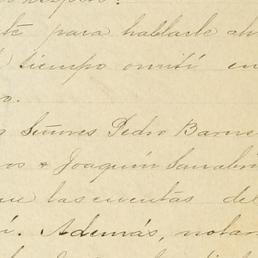 te para hablarte ah
tiempo omití en
o.
Señores Pedro Barne
os & Joaquín Sanabri
ue las cuentas del
í. Además, notan